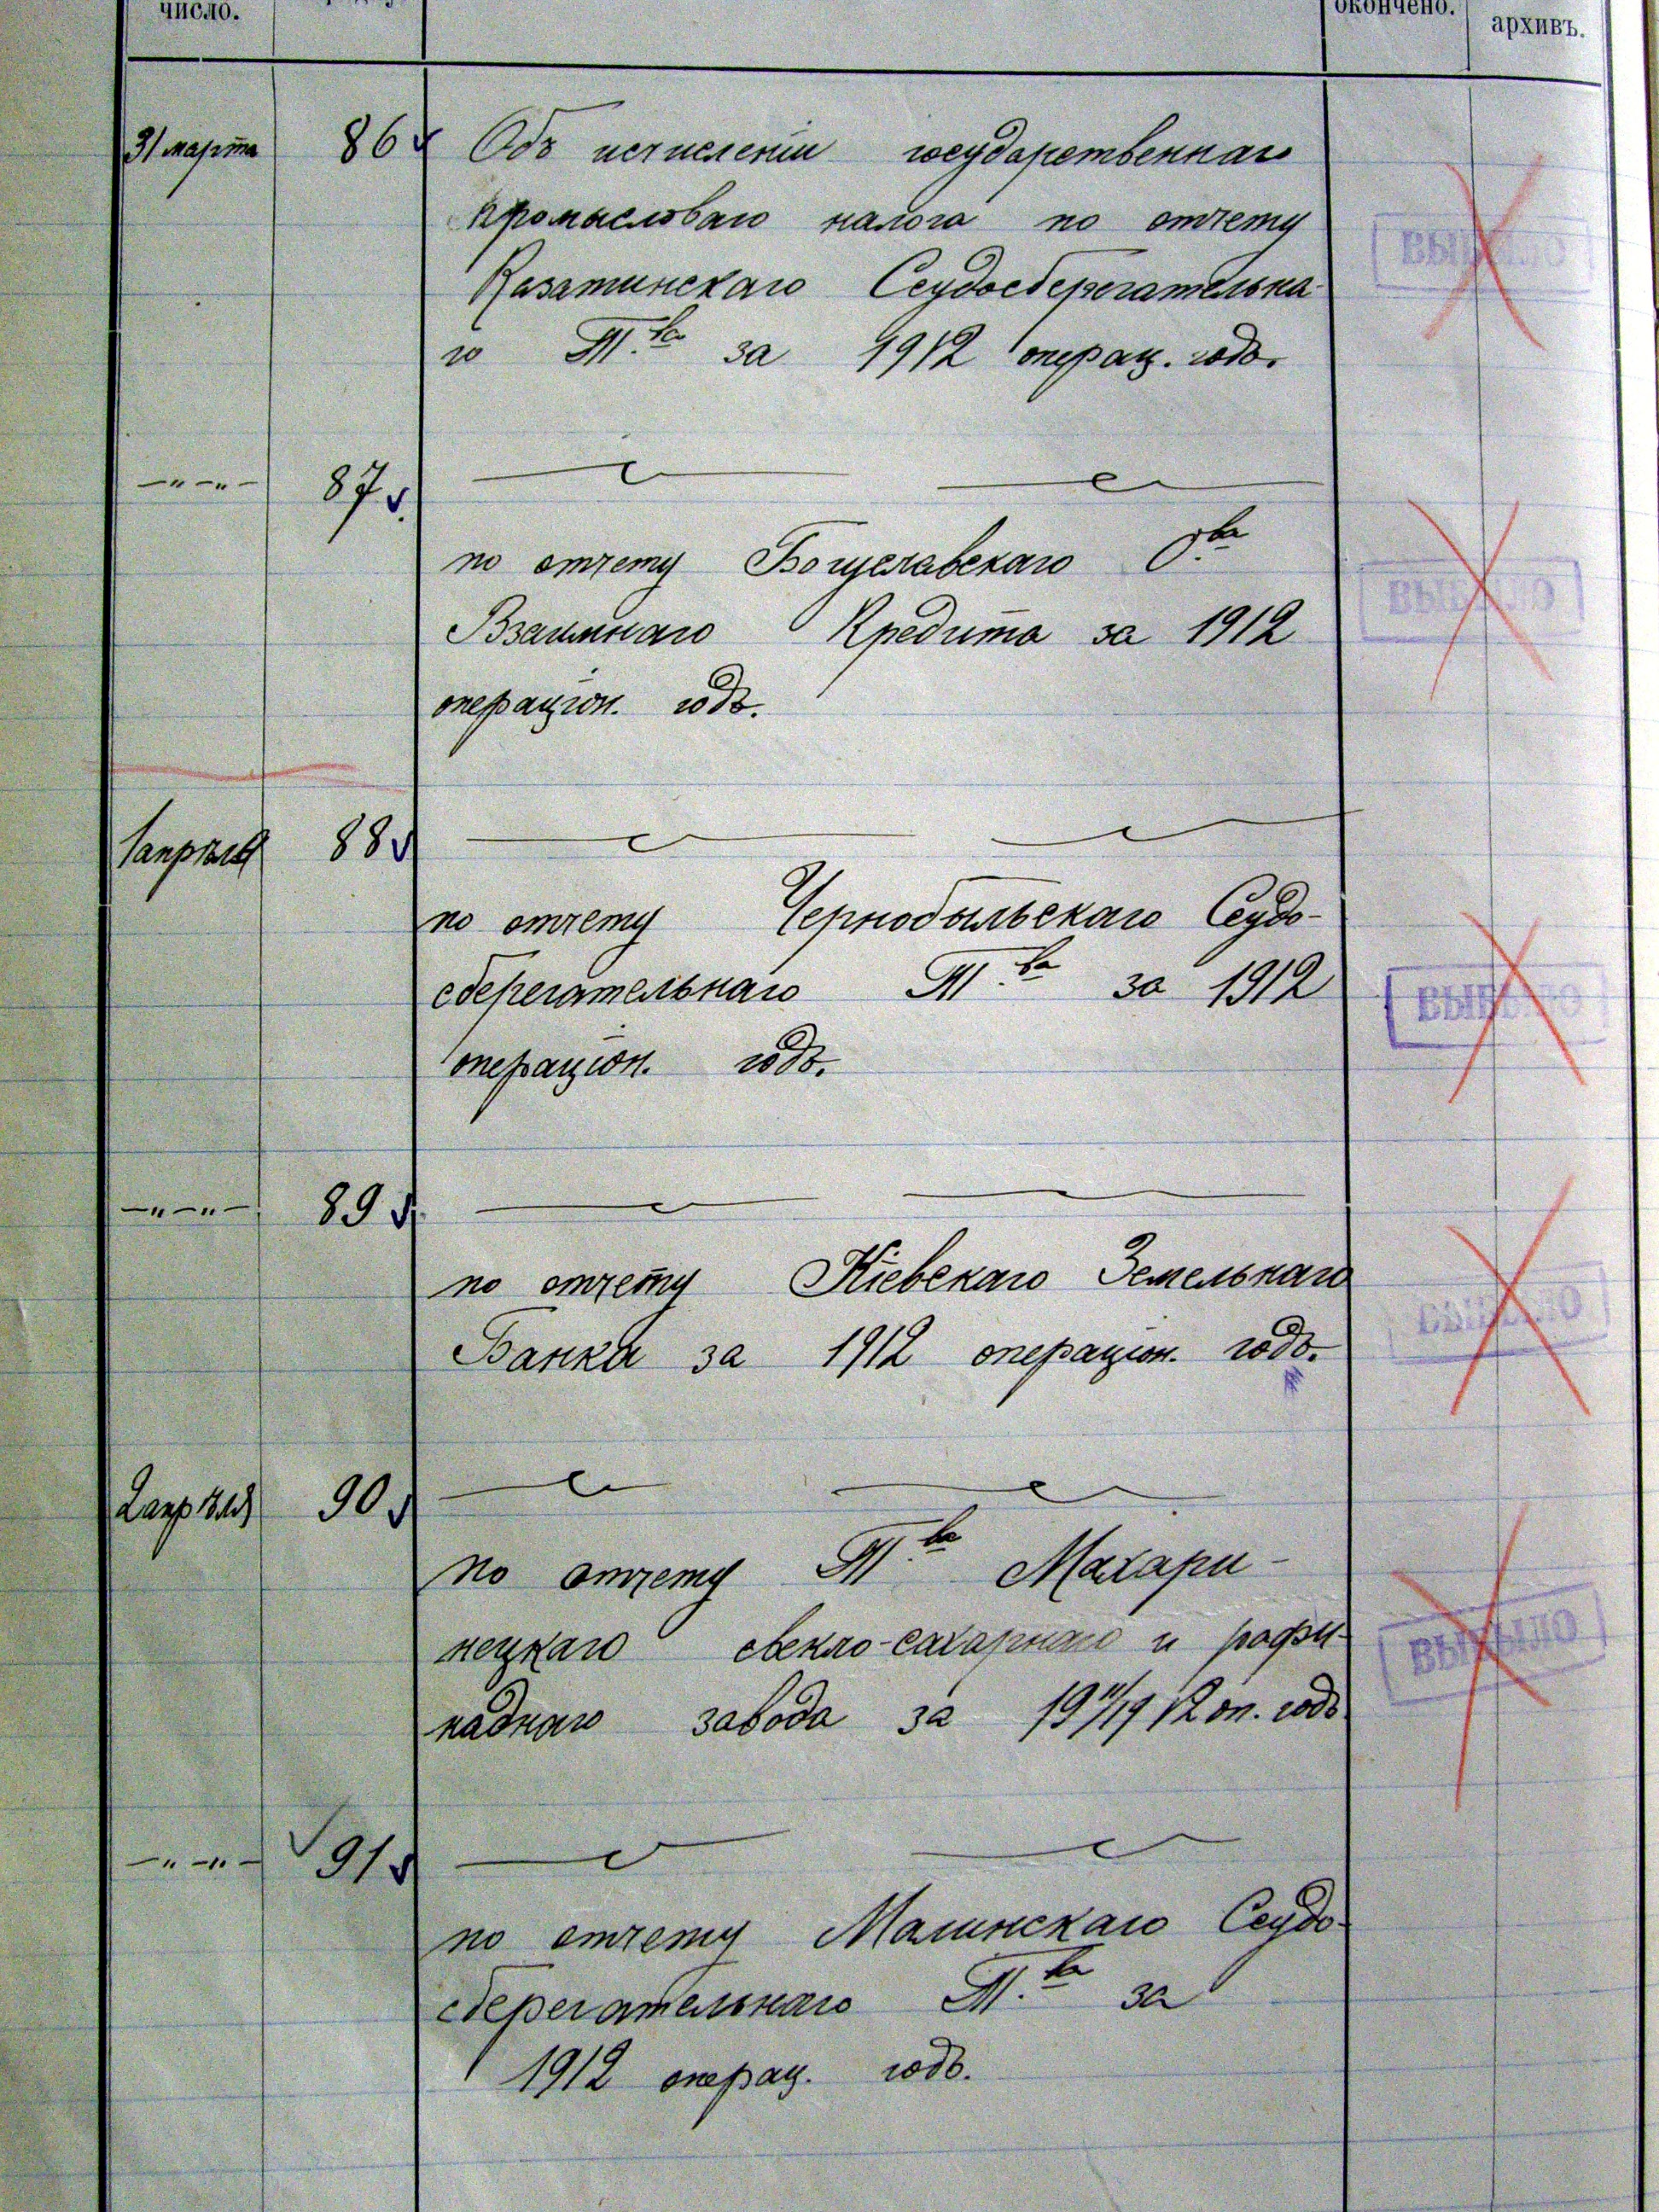 число.
окончено.
архивъ.
31 марта 86 Объ исчисленіи государственнаго
промысловаго налога по отчету
Казатинскаго Ссудосберегательна-
го Т.ва за 1912 операц. годъ.
ВЫБЫЛО
—„—„— 87
по отчету Богуславскаго О.ва
Взаимнаго Кредита за 1912
операціон. годъ.
ВЫБЫЛО
1 апрѣля 88
по отчету Чернобыльскаго Ссудо-
сберегательнаго Т.ва за 1912
операціон. годъ.
ВЫБЫЛО
—„—„— 89
по отчету Кіевскаго Земельнаго
Банка за 1912 операціон. годъ.
ВЫБЫЛО
2 апрѣля 90
по отчету Т.ва Махари-
нецкаго свекло-сахарнаго и рафи-
наднаго завода за 1911/1912 оп. годъ
ВЫБЫЛО
—„—„— 91
по отчету Малинскаго Ссудо-
сберегательнаго Т.ва за
1912 операц. годъ.